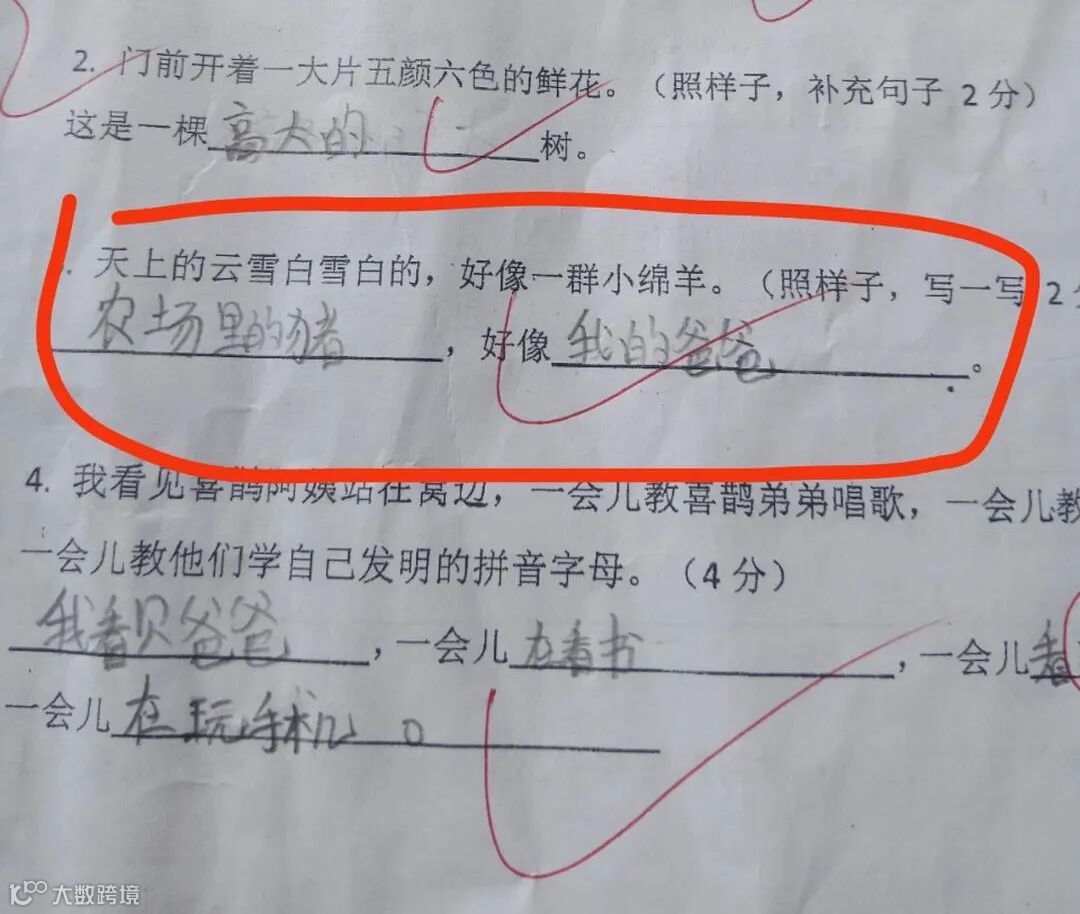 2. 门前开着一大片五颜六色的鲜花。（照样子，补充句子 2 分）
这是一棵高大的树。
. 天上的云雪白雪白的，好像一群小绵羊。（照样子，写一写 2
农场里的猪，好像我的爸爸。
4. 我看见喜鹊阿姨站在窝边，一会儿教喜鹊弟弟唱歌，一会儿教
一会儿教他们学自己发明的拼音字母。（4 分）
我看贝爸爸，一会儿在看书，一会儿看
一会儿在玩手机。
大数跨境